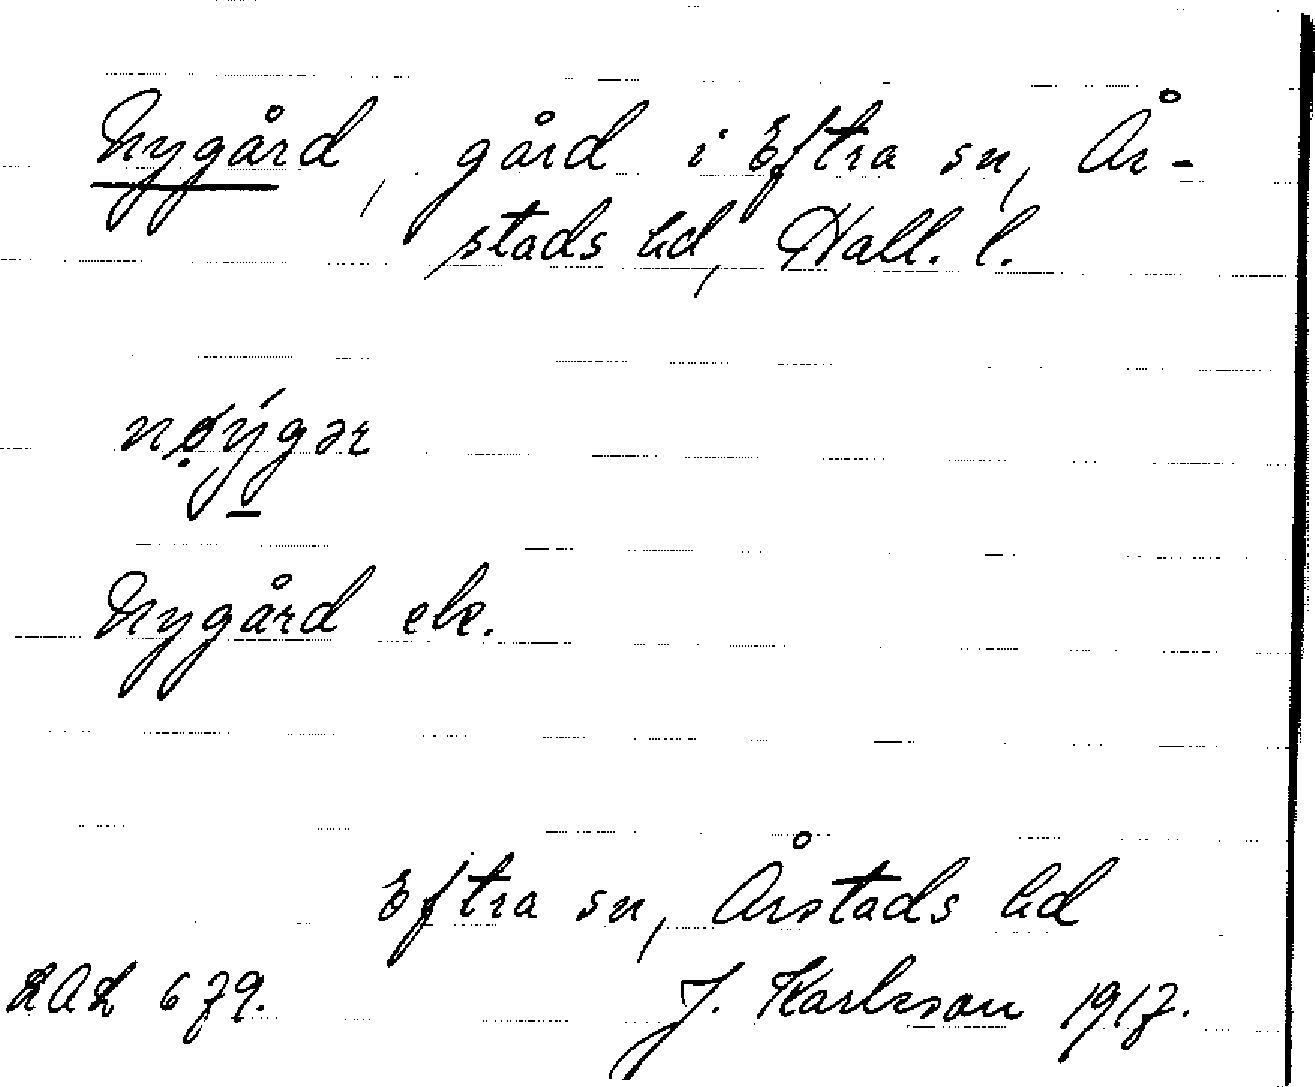 Nygård, gård i Eftra sn, År-
stads hd, Hall. l.
nǿýgər
Nygård ek.
Eftra sn, Årstads hd
LAL 679. J. Karlsson 1917.